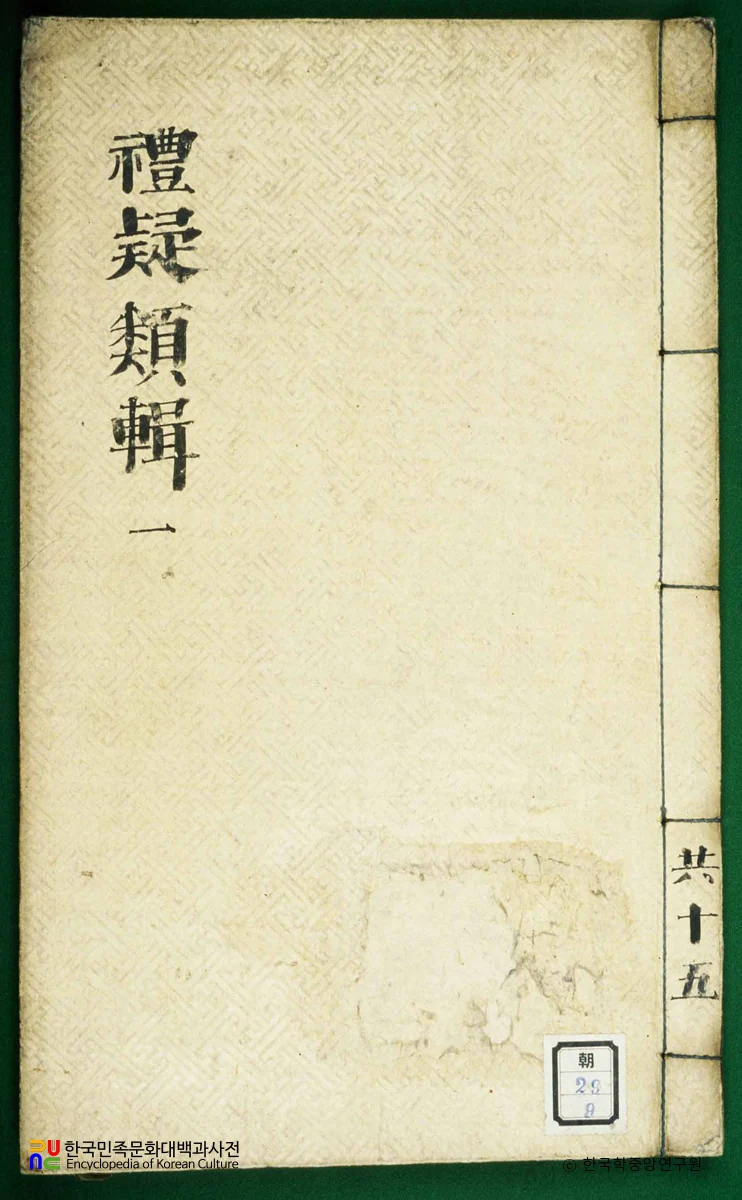 禮疑類輯 一
共十五
朝
29
9
한국민족문화대백과사전
Encyclopedia of Korean Culture
© 한국학중앙연구원